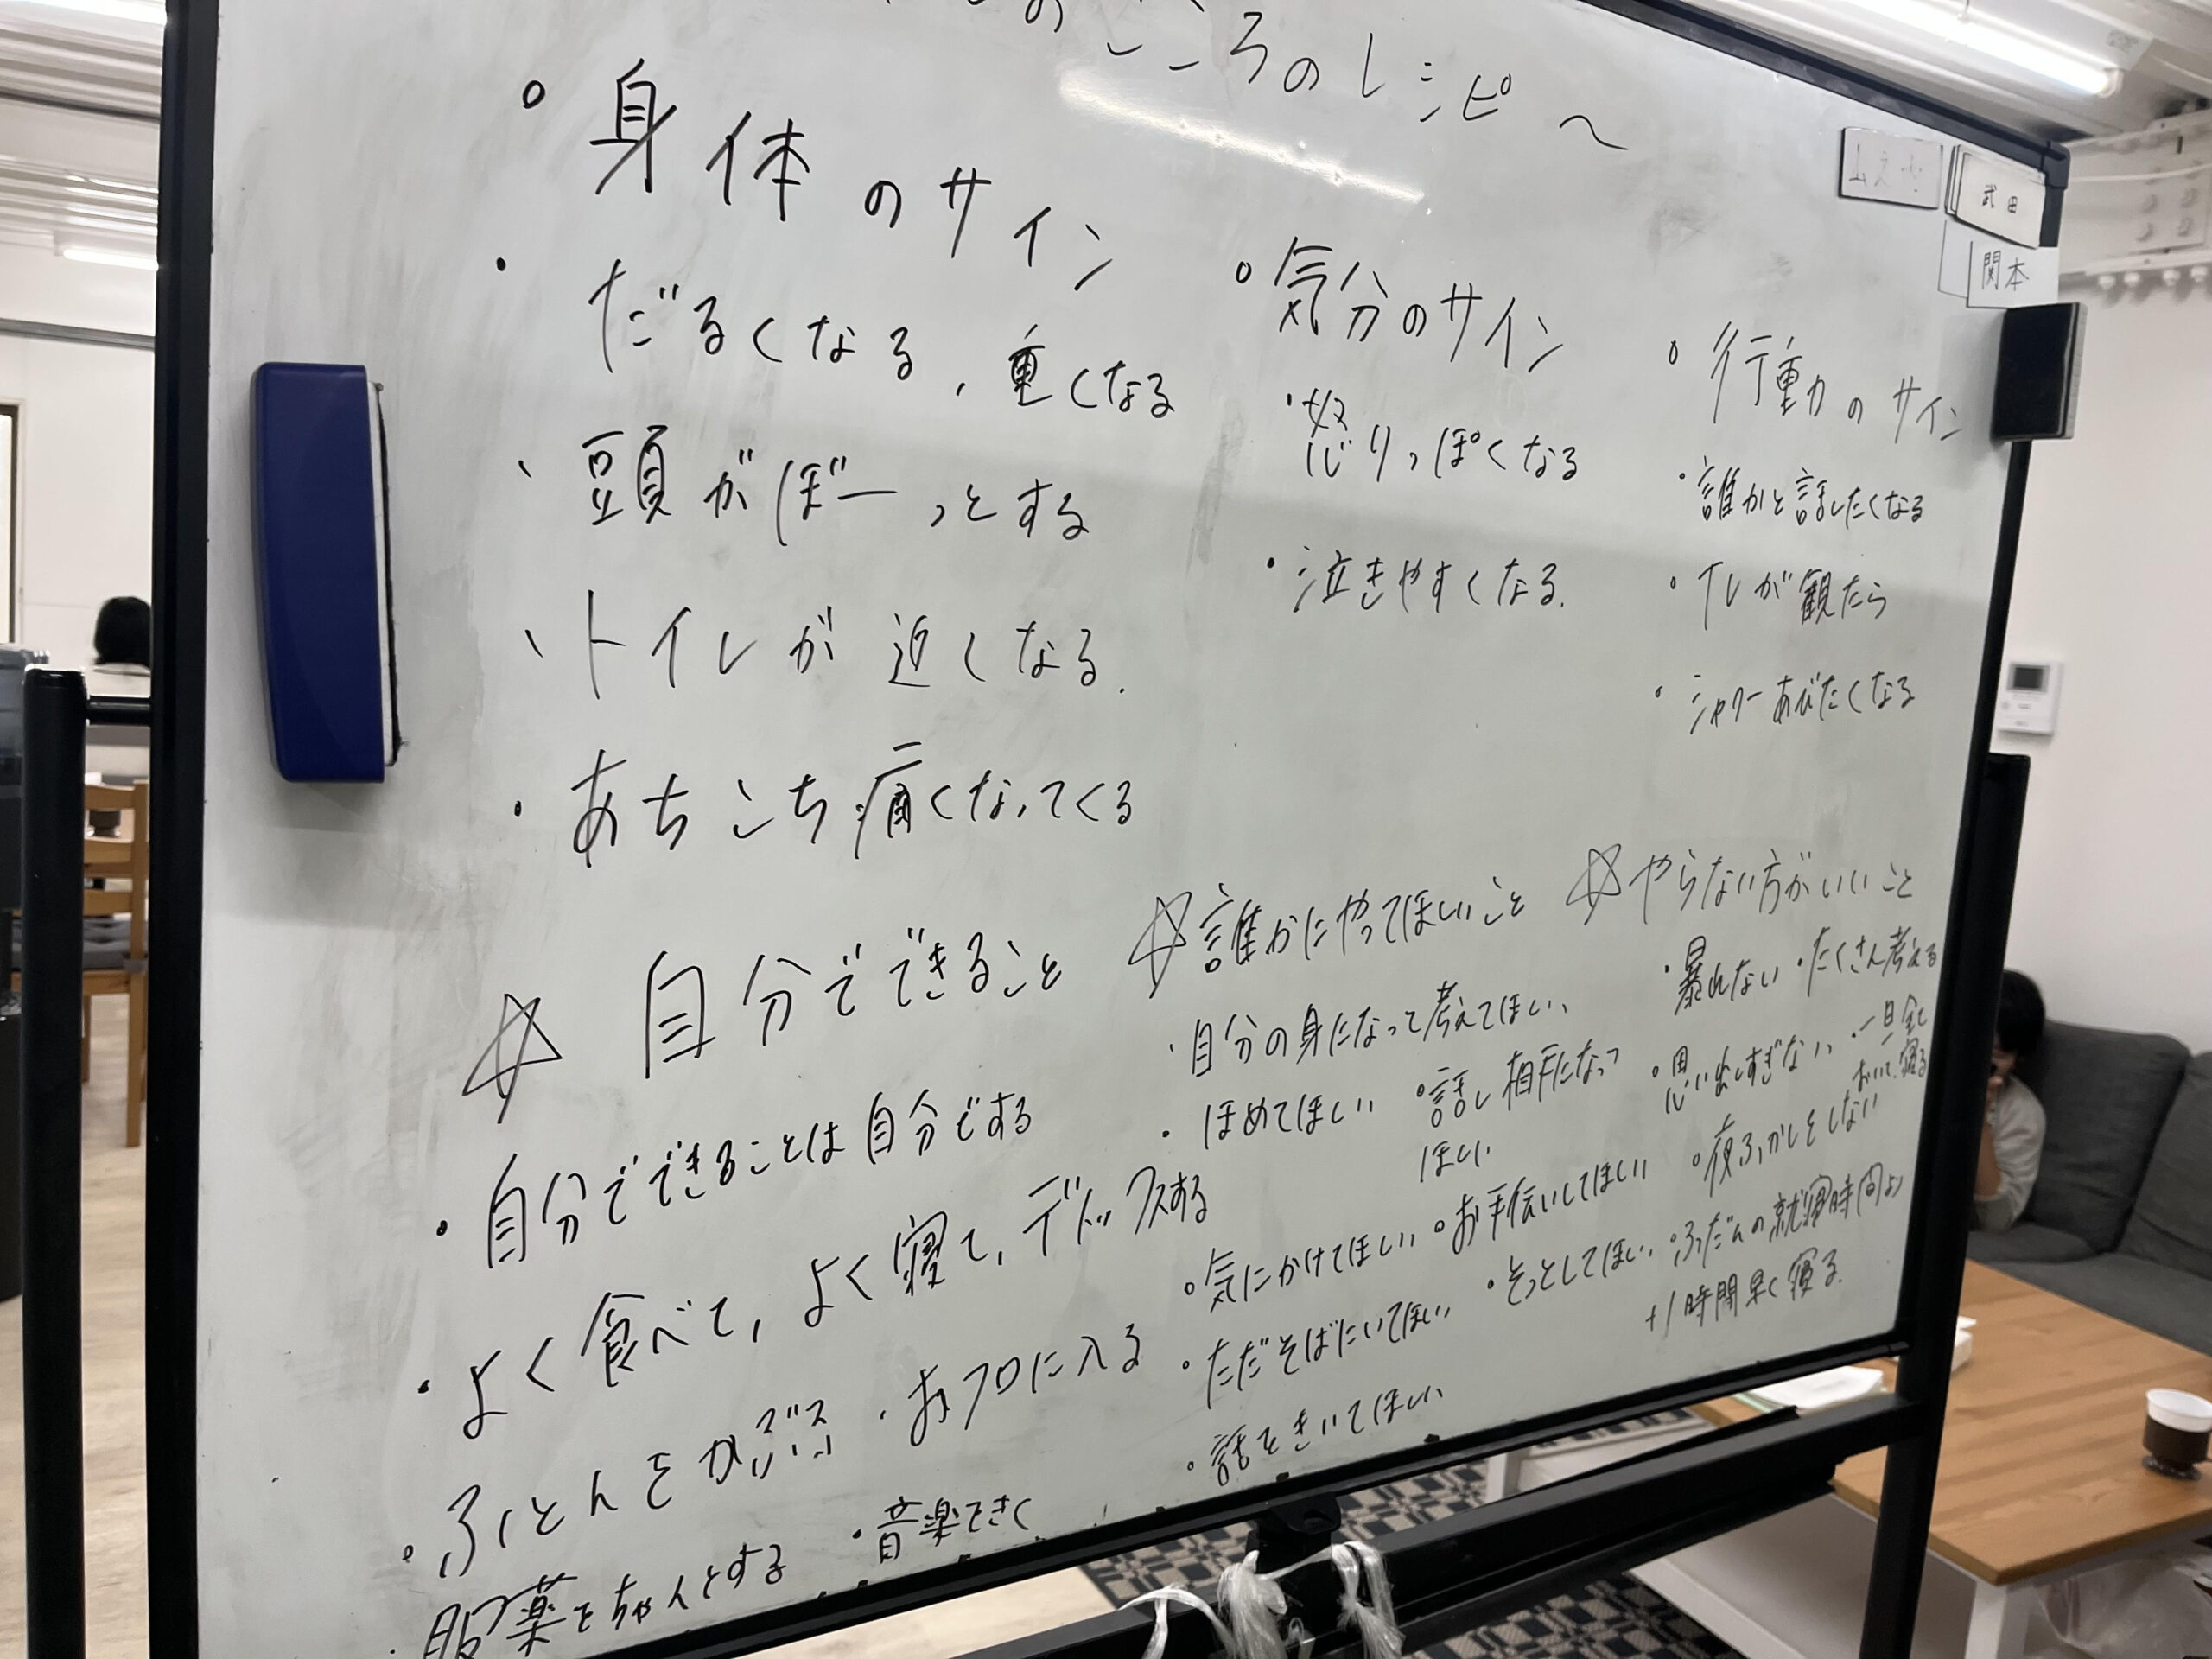 のこころのレシピ～
。身体のサイン
・だるくなる、重くなる
、頭がぼーっとする
、トイレが近くなる.
・あちこち痛くなってくる
。気分のサイン
・怒りっぽくなる
・泣きやすくなる.
。行動のサイン
・誰かと話したくなる
・TVが観たら
・シャワーあびたくなる
☆自分でできること
・自分でできることは自分でする
・よく食べて、よく寝て、デトックスする
・ふとんをかぶる
・おフロに入る
・服薬をちゃんとする
・音楽をきく
☆誰かにやってほしいこと
・自分の身になって考えてほしい、
・ほめてほしい
。話し相手になっ
ほしい
。気にかけてほしい
。お手伝いしてほしい
・ただそばにいてほしい
・そっとしてほしい
。話をきいてほしい
☆やらない方がいいこと
・暴れない
・たくさん考える
。思い出しすぎない
・一旦全て
おいて、寝る
。夜ふかしをしない
。ふだんの就寝時間より
+1時間早く寝る.
武田
関本